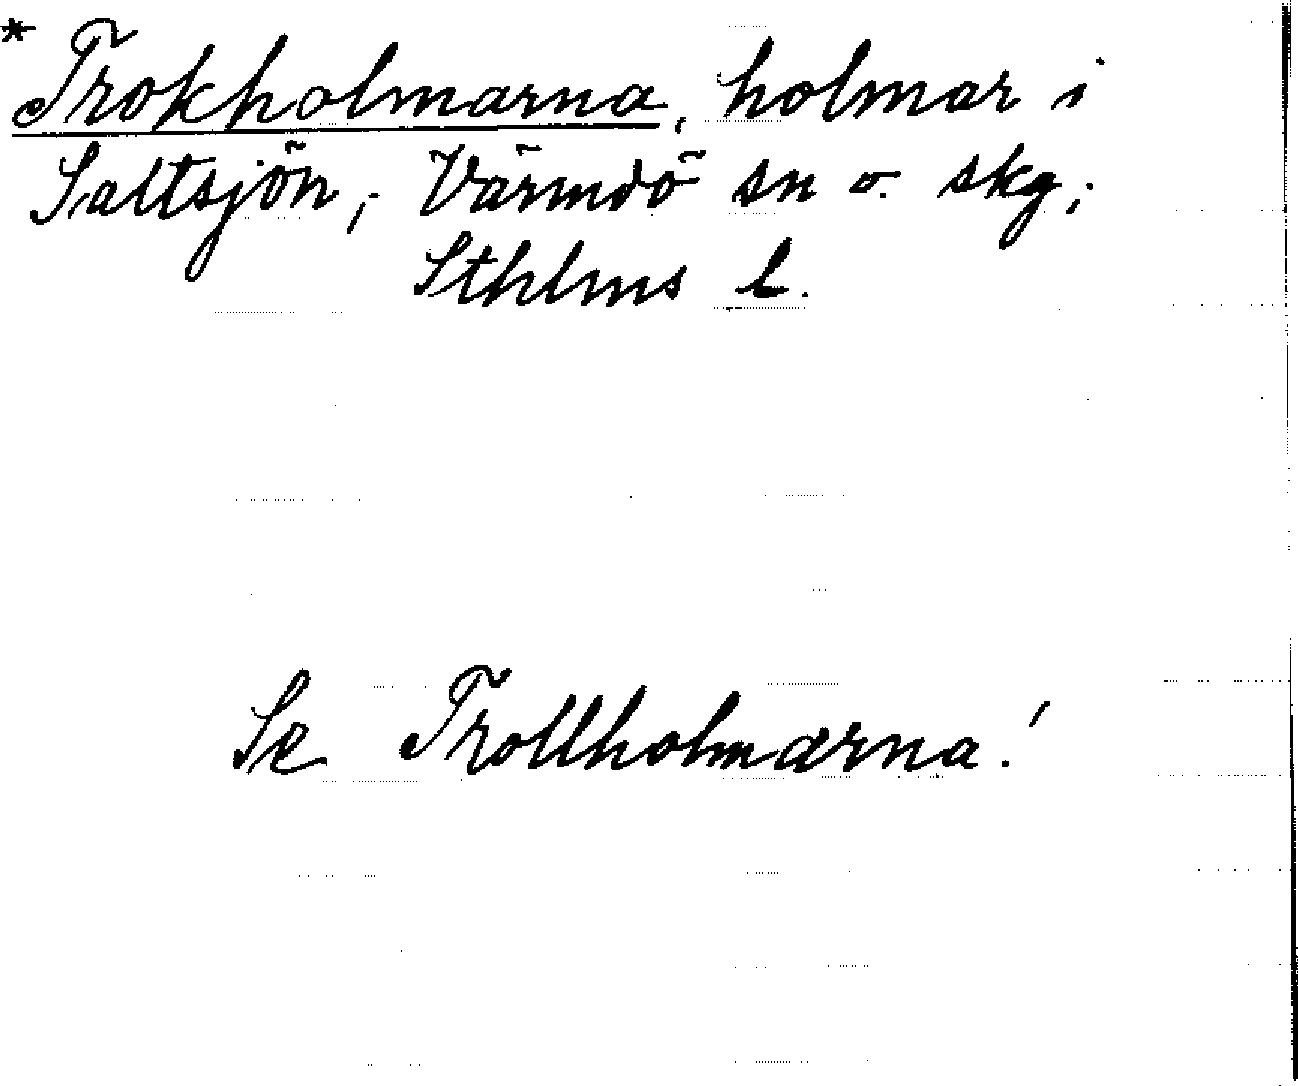 * Trokholmarna, holmar i
Saltsjön, Värmdö sn o. skg,
Sthlms l.
Se Trollholmarna!